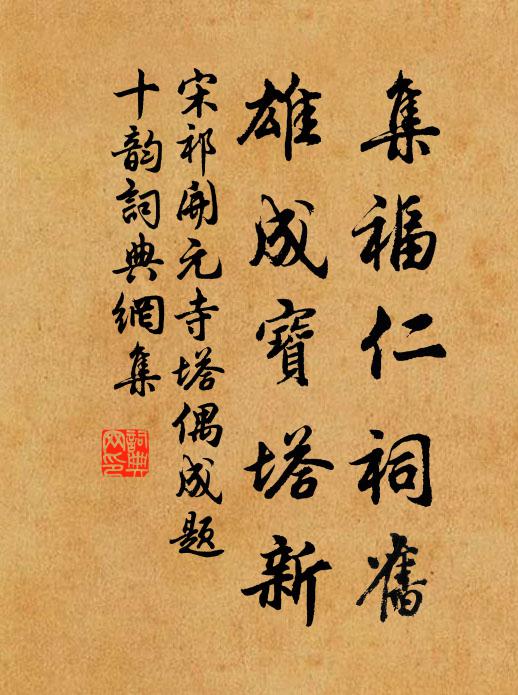 集福仁祠舊
雄成寶塔新
宋祁開元寺塔偶成題
十韵詞典網集
詞典網印